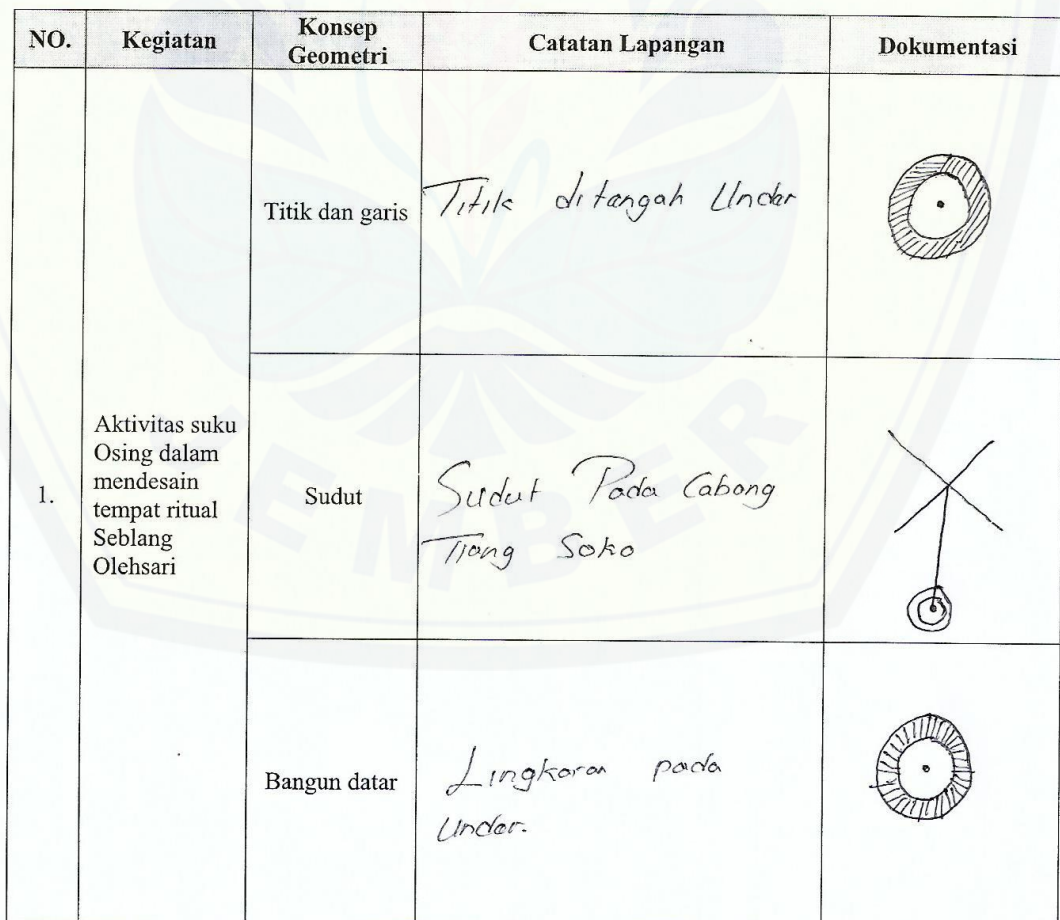 NO.
Kegiatan
Konsep
Geometri
Catatan Lapangan
Dokumentasi
1.
Aktivitas suku
Osing dalam
mendesain
tempat ritual
Seblang
Olehsari
Titik dan garis
Titik ditangah Under
Sudut
Sudut Pada Cabang
Tiang Soko
Bangun datar
Lingkaran pada
Under.
JEMBER